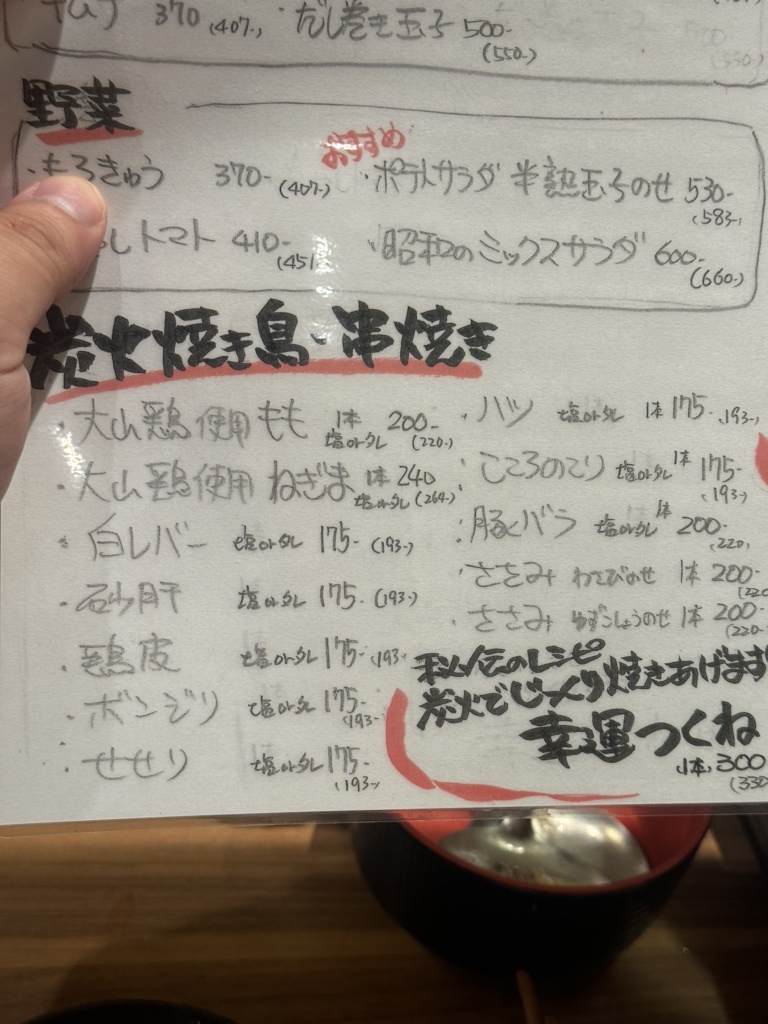 キムチ 370 (407-) ・だし巻き玉子 500- (550-)
野菜
おすすめ
・もろきゅう 370- (407-) ・ポテトサラダ 半熟玉子のせ 530- (583-)
しトマト 410- (451 ・昭和のミックスサラダ 600- (660-)
炭火焼き鳥・串焼き
・大山鶏使用もも 1本 塩orタレ 200- (220-)
・大山鶏使用ねぎま 1本 塩orタレ 240 (264-)
・白レバー 塩orタレ 175- (193-)
・砂肝 塩orタレ 175- (193-)
・鶏皮 塩orタレ 175- (193-
・ボンジリ 塩orタレ 175- (193-
・せせり 塩orタレ 175- (193-)
・ハツ 塩orタレ 1本 175- (193-)
・こころのこり 塩orタレ 1本 175- (193)
・豚バラ 塩orタレ 1本 200- (220)
・ささみ わさびのせ 1本 200- (220
・ささみ ゆずこしょうのせ 1本 200- (220-
秘伝のレシピ
炭火でじっくり焼きあげます
幸運つくね
1本 300 (330